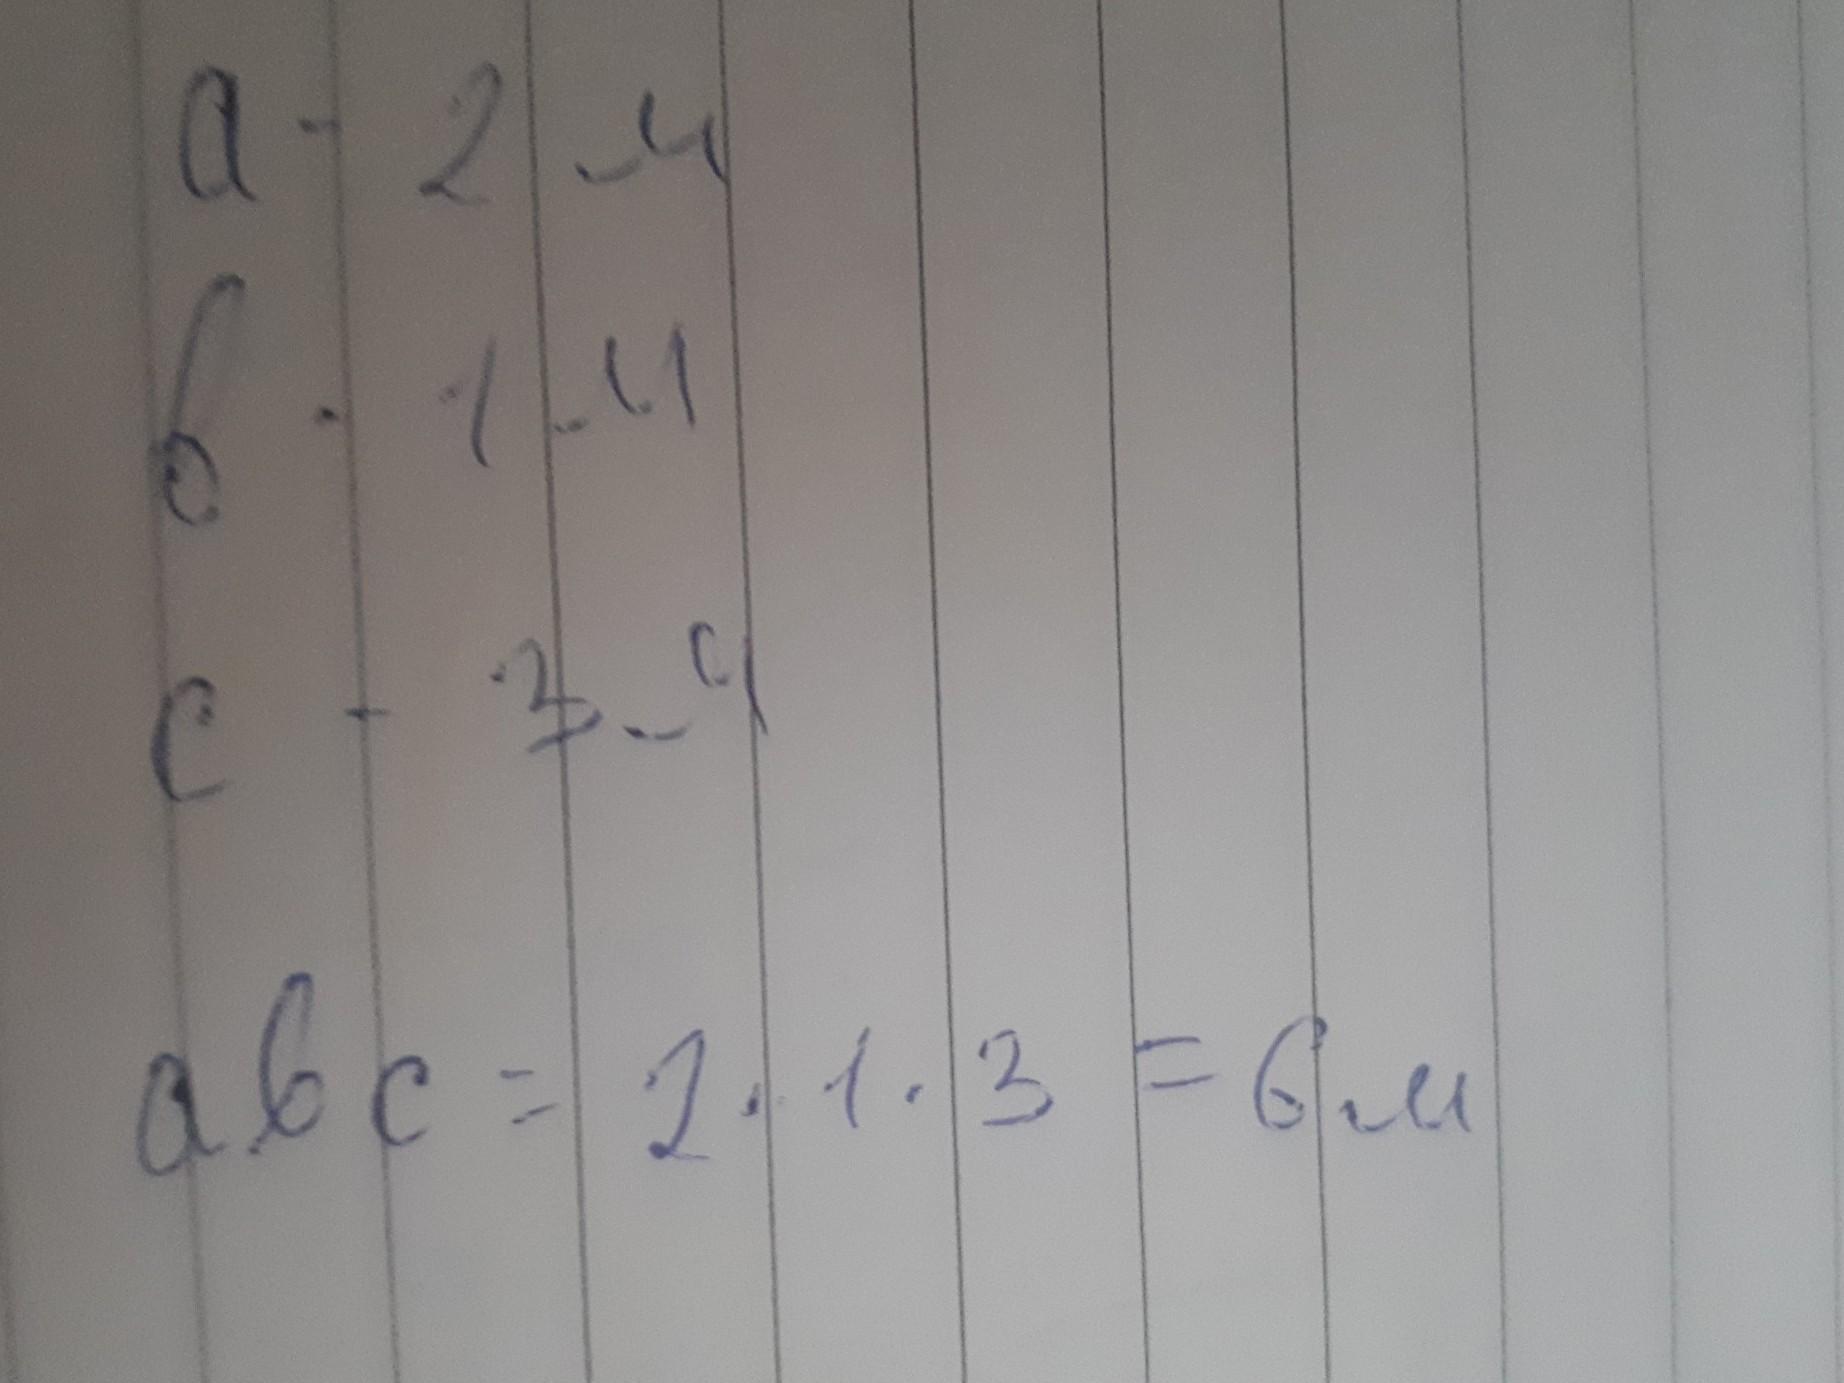 a - 2 м
b - 1 м
c - 3 м
abc = 2 · 1 · 3 = 6 м